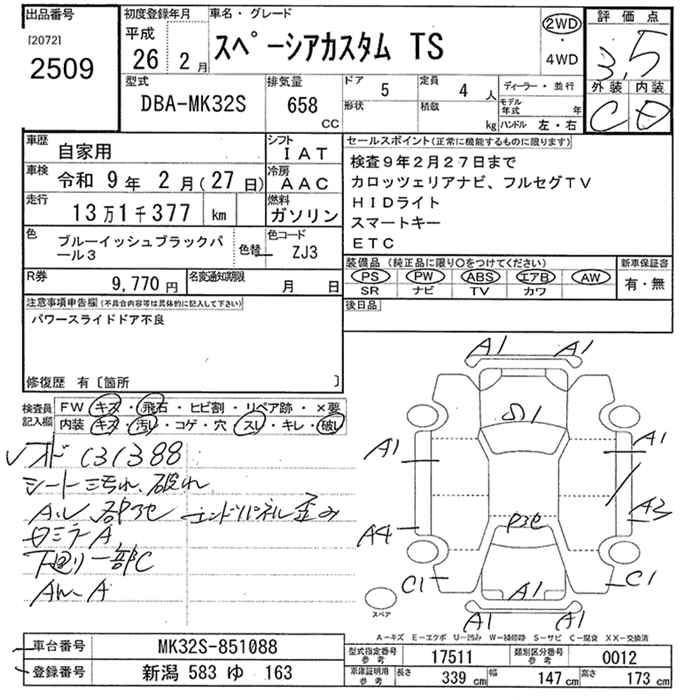 出品番号
[2072]
2509
初度登録年月
平成
26 2 月
車名・グレード
スペーシアカスタム TS
2WD
・
4WD
評価点
3.5
外装 内装
C D
型式
DBA-MK32S
排気量
658
CC
ドア 5
形状
定員 4 人
積載 kg
ディーラー・並行
モデル年式 年
ハンドル 左・右
車歴
自家用
シフト
IAT
車検
令和 9 年 2 月(27 日)
冷房
AAC
走行
13万1千377 km
燃料
ガソリン
色
ブルーイッシュブラックパ
ール3
色替
色コード
ZJ3
R券
9,770 円
名変通知期限
月 日
セールスポイント(正常に機能するものに限ります)
検査9年2月27日まで
カロッツェリアナビ、フルセグTV
HIDライト
スマートキー
ETC
装備品 (純正品に限り○をつけてください)
PS PW ABS エアB AW
SR ナビ TV カワ
新車保証書
有・無
後日品
注意事項申告欄(不具合内容等は具体的に記入して下さい)
パワースライドドア不良
修復歴 有〔箇所 〕
検査員
記入欄
FW キズ・飛石・ヒビ割・リペア跡・×要
内装 キズ・汚れ・コゲ・穴・スレ・キレ・破れ
131388
シート 汚れ、破れ
下廻り一部C
A1 A1
A1
A1
A4
A3
C1
C1
A1
A1 A1
スペア
A-キズ E-エクボ U-凹み W-補修跡 S-サビ C-腐食 XX-交換済
車台番号
MK32S-851088
登録番号
新潟 583 ゆ 163
型式指定番号
参考
17511
類別区分番号
参考
0012
車庫証明用
参考
長さ 339 cm
幅 147 cm
高さ 173 cm